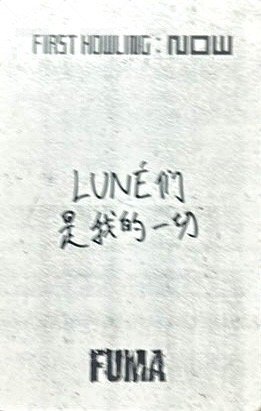 FIRST HOWLING : NOW
LUNÉ们
是我的一切
FUMA